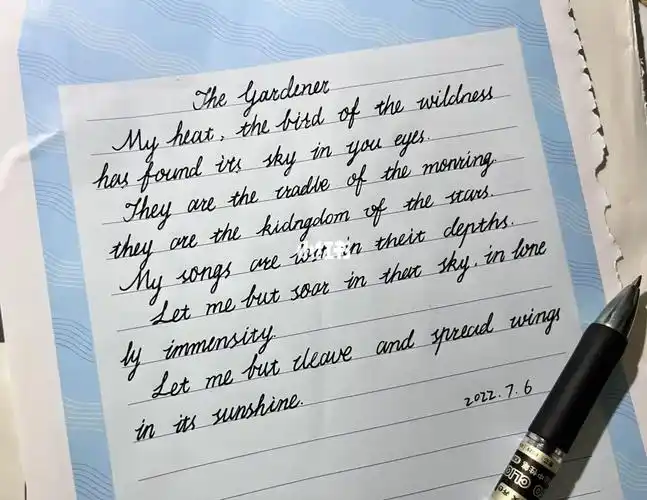 The Gardener
My heat, the bird of the wildness
has found its sky in you eyes.
They are the cradle of the monring.
they are the kidngdom of the stars.
My songs are in their depths.
Let me but soar in that sky. in lone
ly immensity.
Let me but cleave and spread wings
in its sunshine.
2022.7.6
小红书